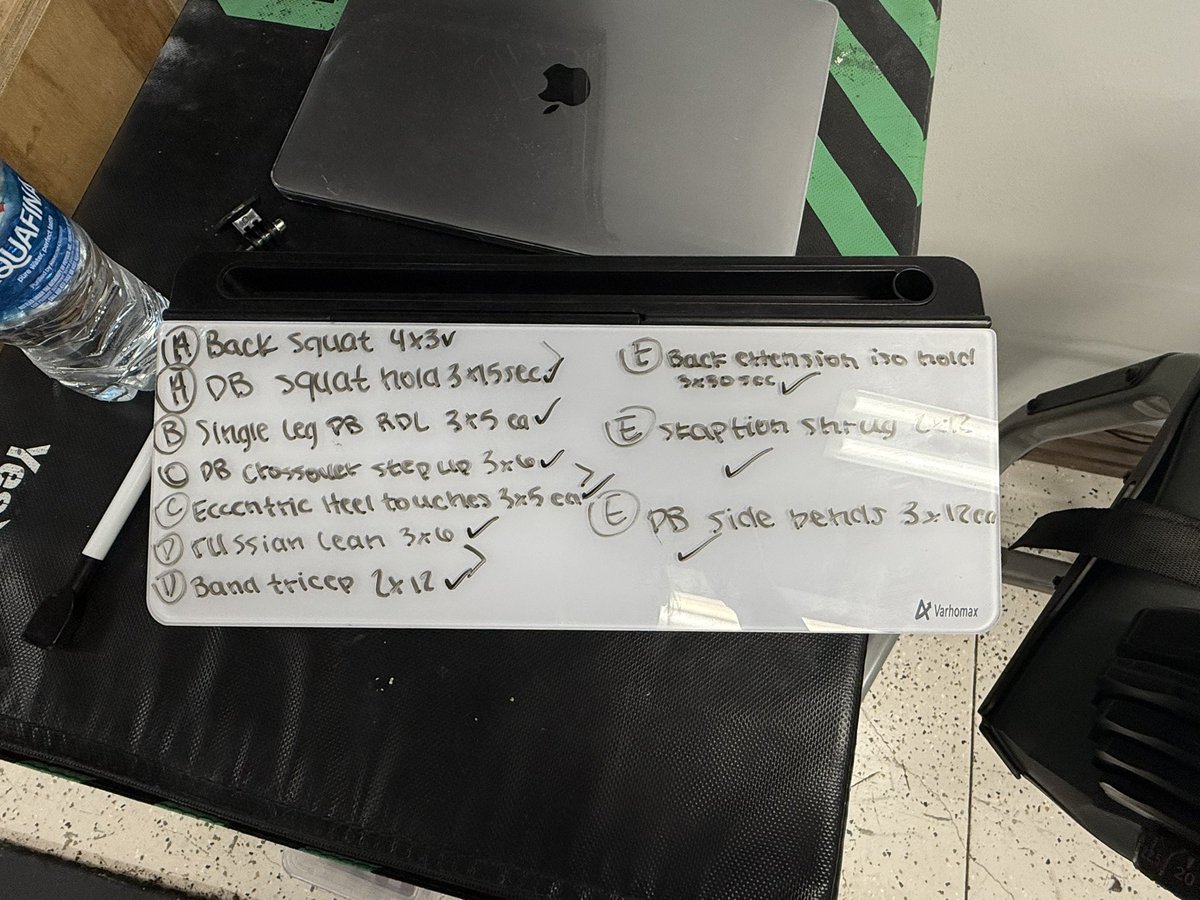 AQUAFINA
pure water, perfect taste
Ⓐ Back Squat 4x3✓
Ⓐ DB squat hold 3x15sec✓
Ⓑ Single Leg DB RDL 3x5 ea✓
Ⓒ DB Crossover step up 3x6✓
Ⓒ Eccentric Heel touches 3x5 ea✓
Ⓓ russian lean 3x6 ✓
Ⓓ Band tricep 2x12 ✓
Ⓔ Back extension iso hold
3x30sec ✓
Ⓔ scaption shrug 2x12
✓
Ⓔ DB side bends 3x12ea
✓
Varhomax
20